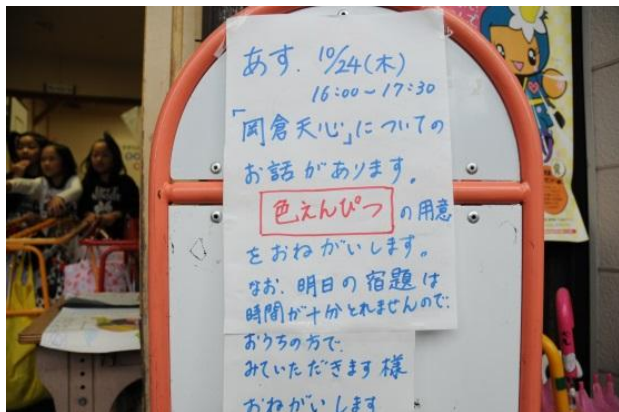 あす、10/24(木)
16:00〜17:30
「岡倉天心」についての
お話があります。
色えんぴつ の用意
をおねがいします。
なお、明日の宿題は
時間が十分とれませんので、
おうちの方で、
みていただきます様
おねがいします